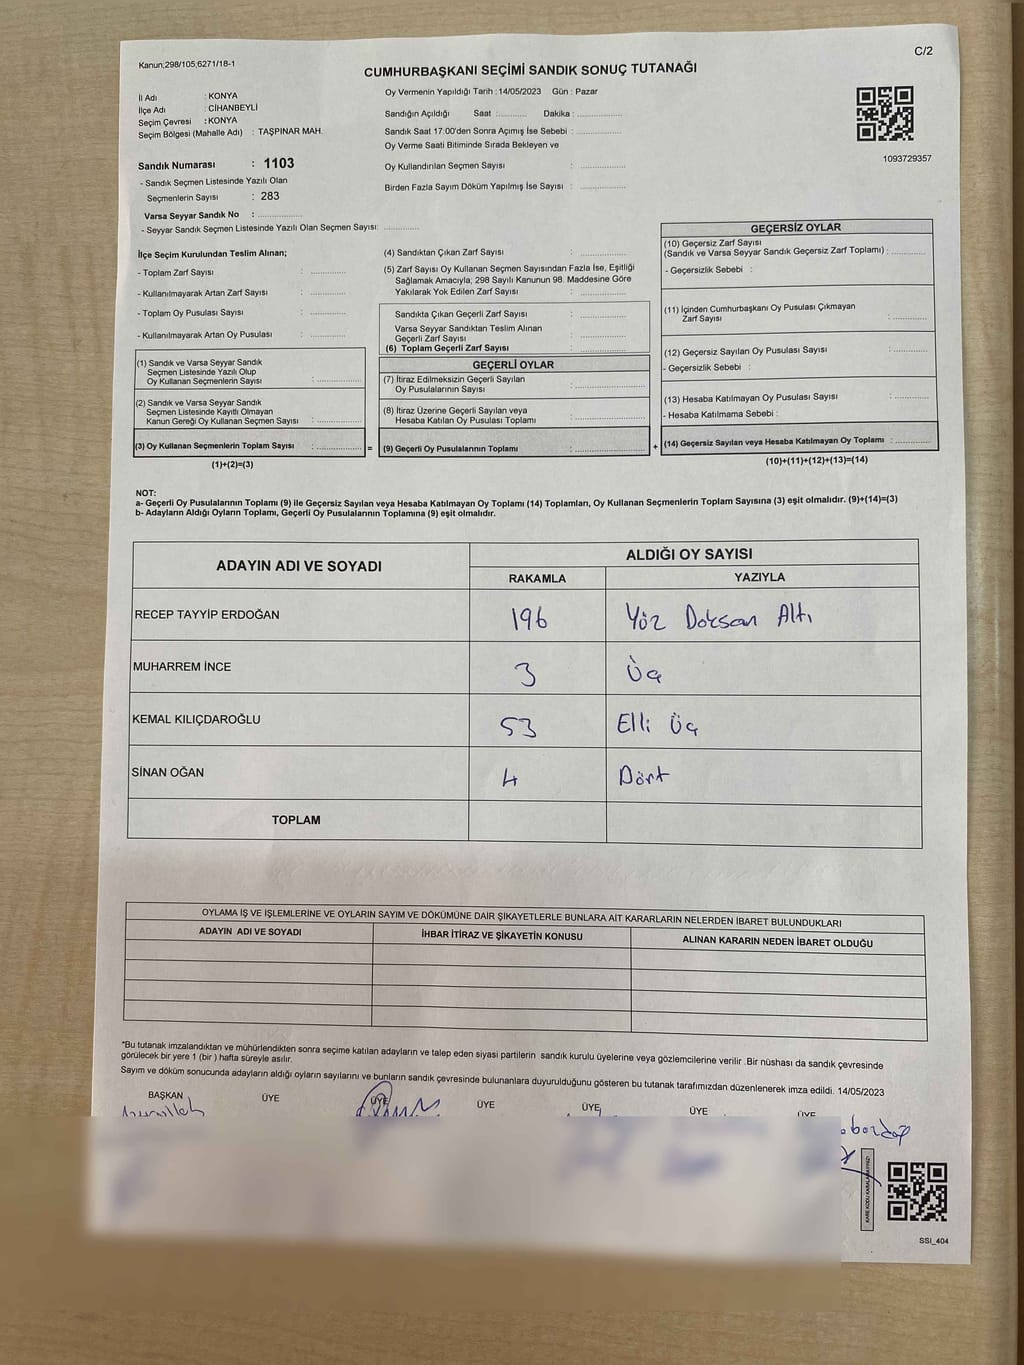 Kanun;298/105,6271/18-1
C/2
CUMHURBAŞKANI SEÇİMİ SANDIK SONUÇ TUTANAĞI
İl Adı : KONYA
İlçe Adı : CİHANBEYLİ
Seçim Çevresi : KONYA
Seçim Bölgesi (Mahalle Adı) : TAŞPINAR MAH.
Oy Vermenin Yapıldığı Tarih : 14/05/2023 Gün : Pazar
Sandığın Açıldığı Saat : Dakika :
Sandık Saat 17:00'den Sonra Açımış İse Sebebi :
Oy Verme Saati Bitiminde Sırada Bekleyen ve
Oy Kullandırılan Seçmen Sayısı :
Birden Fazla Sayım Döküm Yapılmış İse Sayısı :
1093729357
Sandık Numarası : 1103
- Sandık Seçmen Listesinde Yazılı Olan
Seçmenlerin Sayısı : 283
Varsa Seyyar Sandık No :
- Seyyar Sandık Seçmen Listesinde Yazılı Olan Seçmen Sayısı:
İlçe Seçim Kurulundan Teslim Alınan;
- Toplam Zarf Sayısı :
- Kullanılmayarak Artan Zarf Sayısı :
- Toplam Oy Pusulası Sayısı :
- Kullanılmayarak Artan Oy Pusulası :
(1) Sandık ve Varsa Seyyar Sandık
Seçmen Listesinde Yazılı Olup
Oy Kullanan Seçmenlerin Sayısı :
(2) Sandık ve Varsa Seyyar Sandık
Seçmen Listesinde Kayıtlı Olmayan
Kanun Gereği Oy Kullanan Seçmen Sayısı :
(3) Oy Kullanan Seçmenlerin Toplam Sayısı : =
(1)+(2)=(3)
(4) Sandıktan Çıkan Zarf Sayısı :
(5) Zarf Sayısı Oy Kullanan Seçmen Sayısından Fazla İse, Eşitliği
Sağlamak Amacıyla, 298 Sayılı Kanunun 98. Maddesine Göre
Yakılarak Yok Edilen Zarf Sayısı :
Sandıkta Çıkan Geçerli Zarf Sayısı :
Varsa Seyyar Sandıktan Teslim Alınan
Geçerli Zarf Sayısı :
(6) Toplam Geçerli Zarf Sayısı :
GEÇERLİ OYLAR
(7) İtiraz Edilmeksizin Geçerli Sayılan
Oy Pusulalarının Sayısı :
(8) İtiraz Üzerine Geçerli Sayılan veya
Hesaba Katılan Oy Pusulası Toplamı :
(9) Geçerli Oy Pusulalarının Toplamı : +
GEÇERSİZ OYLAR
(10) Geçersiz Zarf Sayısı
(Sandık ve Varsa Seyyar Sandık Geçersiz Zarf Toplamı) :
- Geçersizlik Sebebi :
(11) İçinden Cumhurbaşkanı Oy Pusulası Çıkmayan
Zarf Sayısı :
(12) Geçersiz Sayılan Oy Pusulası Sayısı :
- Geçersizlik Sebebi :
(13) Hesaba Katılmayan Oy Pusulası Sayısı :
- Hesaba Katılmama Sebebi :
(14) Geçersiz Sayılan veya Hesaba Katılmayan Oy Toplamı :
(10)+(11)+(12)+(13)=(14)
NOT:
a- Geçerli Oy Pusulalarının Toplamı (9) ile Geçersiz Sayılan veya Hesaba Katılmayan Oy Toplamı (14) Toplamları, Oy Kullanan Seçmenlerin Toplam Sayısına (3) eşit olmalıdır. (9)+(14)=(3)
b- Adayların Aldığı Oyların Toplamı, Geçerli Oy Pusulalarının Toplamına (9) eşit olmalıdır.
ADAYIN ADI VE SOYADI
ALDIĞI OY SAYISI
RAKAMLA YAZIYLA
RECEP TAYYİP ERDOĞAN 196 Yüz Doksan Altı
MUHARREM İNCE 3 Üç
KEMAL KILIÇDAROĞLU 53 Elli Üç
SİNAN OĞAN 4 Dört
TOPLAM
OYLAMA İŞ VE İŞLEMLERİNE VE OYLARIN SAYIM VE DÖKÜMÜNE DAİR ŞİKAYETLERLE BUNLARA AİT KARARLARIN NELERDEN İBARET BULUNDUKLARI
ADAYIN ADI VE SOYADI İHBAR İTİRAZ VE ŞİKAYETİN KONUSU ALINAN KARARIN NEDEN İBARET OLDUĞU
*Bu tutanak imzalandıktan ve mühürlendikten sonra seçime katılan adayların ve talep eden siyasi partilerin sandık kurulu üyelerine veya gözlemcilerine verilir .Bir nüshası da sandık çevresinde
görülecek bir yere 1 (bir ) hafta süreyle asılır.
Sayım ve döküm sonucunda adayların aldığı oyların sayılarını ve bunların sandık çevresinde bulunanlara duyurulduğunu gösteren bu tutanak tarafımızdan düzenlenerek imza edildi. 14/05/2023
BAŞKAN ÜYE ÜYE ÜYE ÜYE ÜYE ÜYE
SSI_404